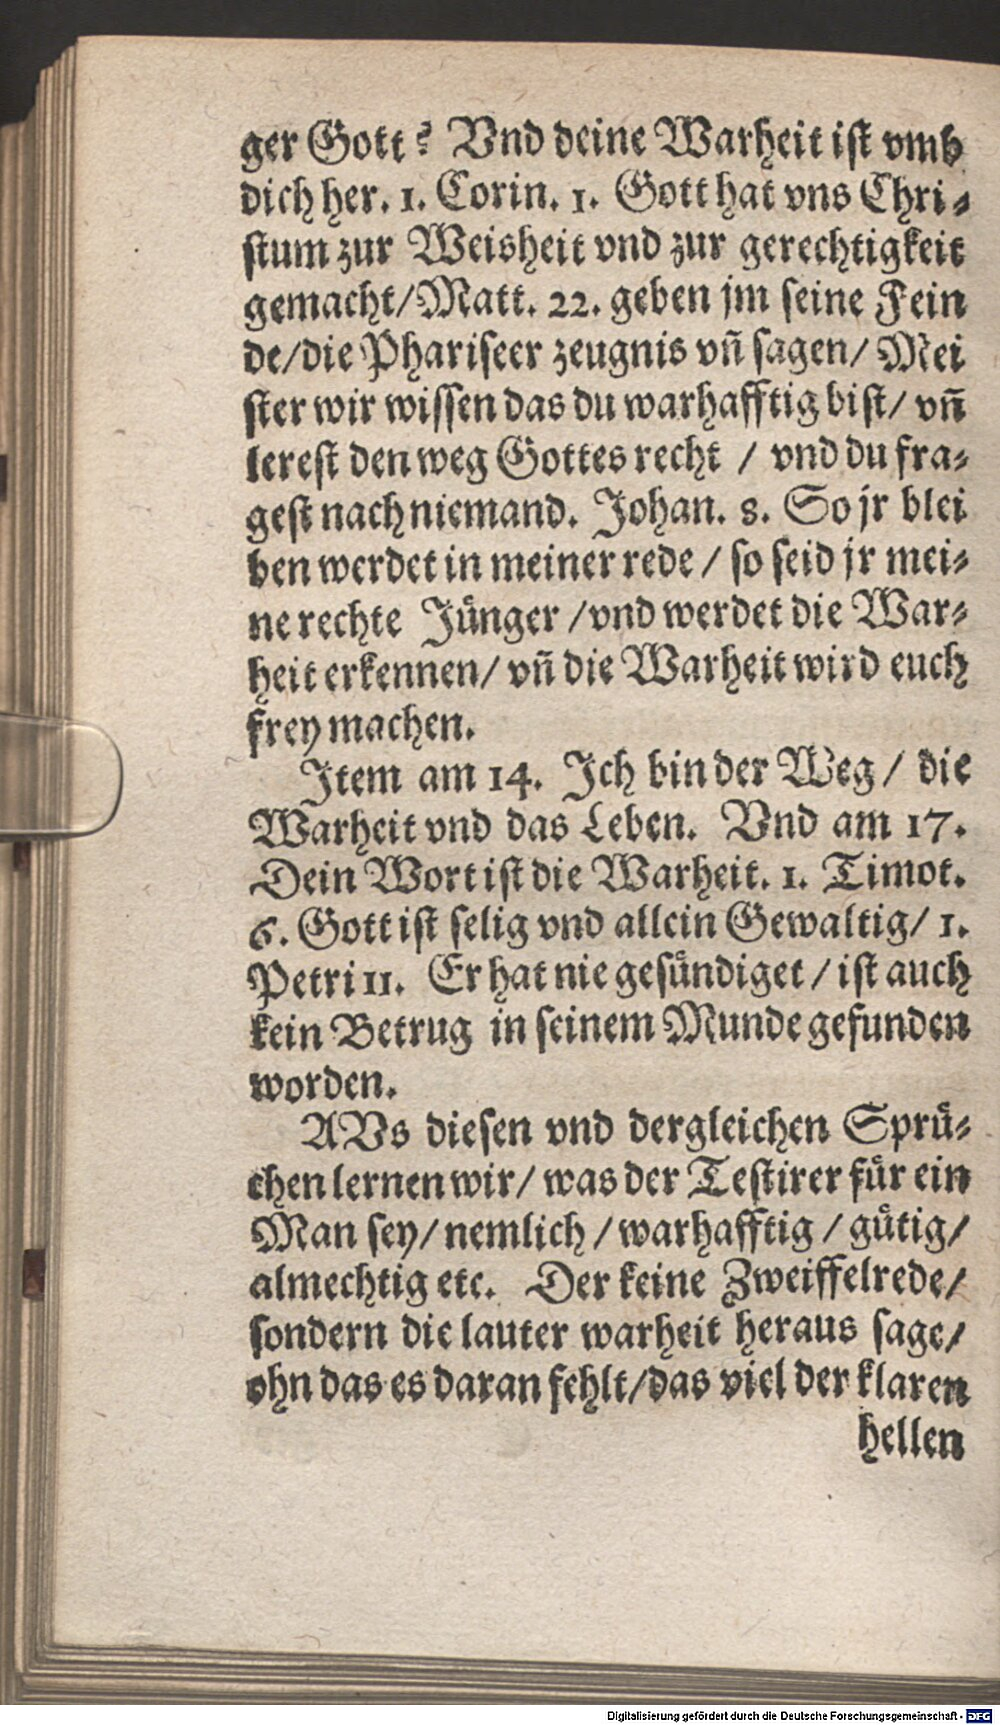 ger Gott? Vnd deine Warheit ist vmb
dich her. 1. Corin. 1. Gott hat vns Chri-
stum zur Weisheit vnd zur gerechtigkeit
gemacht/Matt. 22. geben jm seine Fein
de/die Phariseer zeugnis vñ sagen/ Mei
ster wir wissen das du warhafftig bist/ vñ
lerest den weg Gottes recht / vnd du fra-
gest nach niemand. Johan. 8. So jr blei
ben werdet in meiner rede / so seid jr mei-
ne rechte Jünger /vnd werdet die War-
heit erkennen/ vñ die Warheit wird euch
frey machen.
Item am 14. Ich bin der Weg / die
Warheit vnd das Leben. Vnd am 17.
Dein Wort ist die Warheit. 1. Timot.
6. Gott ist selig vnd allein Gewaltig/ 1.
Petri 11. Er hat nie gesündiget / ist auch
kein Betrug in seinem Munde gefunden
worden.
AVs diesen vnd dergleichen Sprü-
chen lernen wir/ was der Testirer für ein
Man sey/ nemlich / warhafftig / gütig/
almechtig etc. Der keine Zweiffelrede/
sondern die lauter warheit heraus sage/
ohn das es daran fehlt/das viel der klaren
hellen
Digitalisierung gefördert durch die Deutsche Forschungsgemeinschaft - DFG